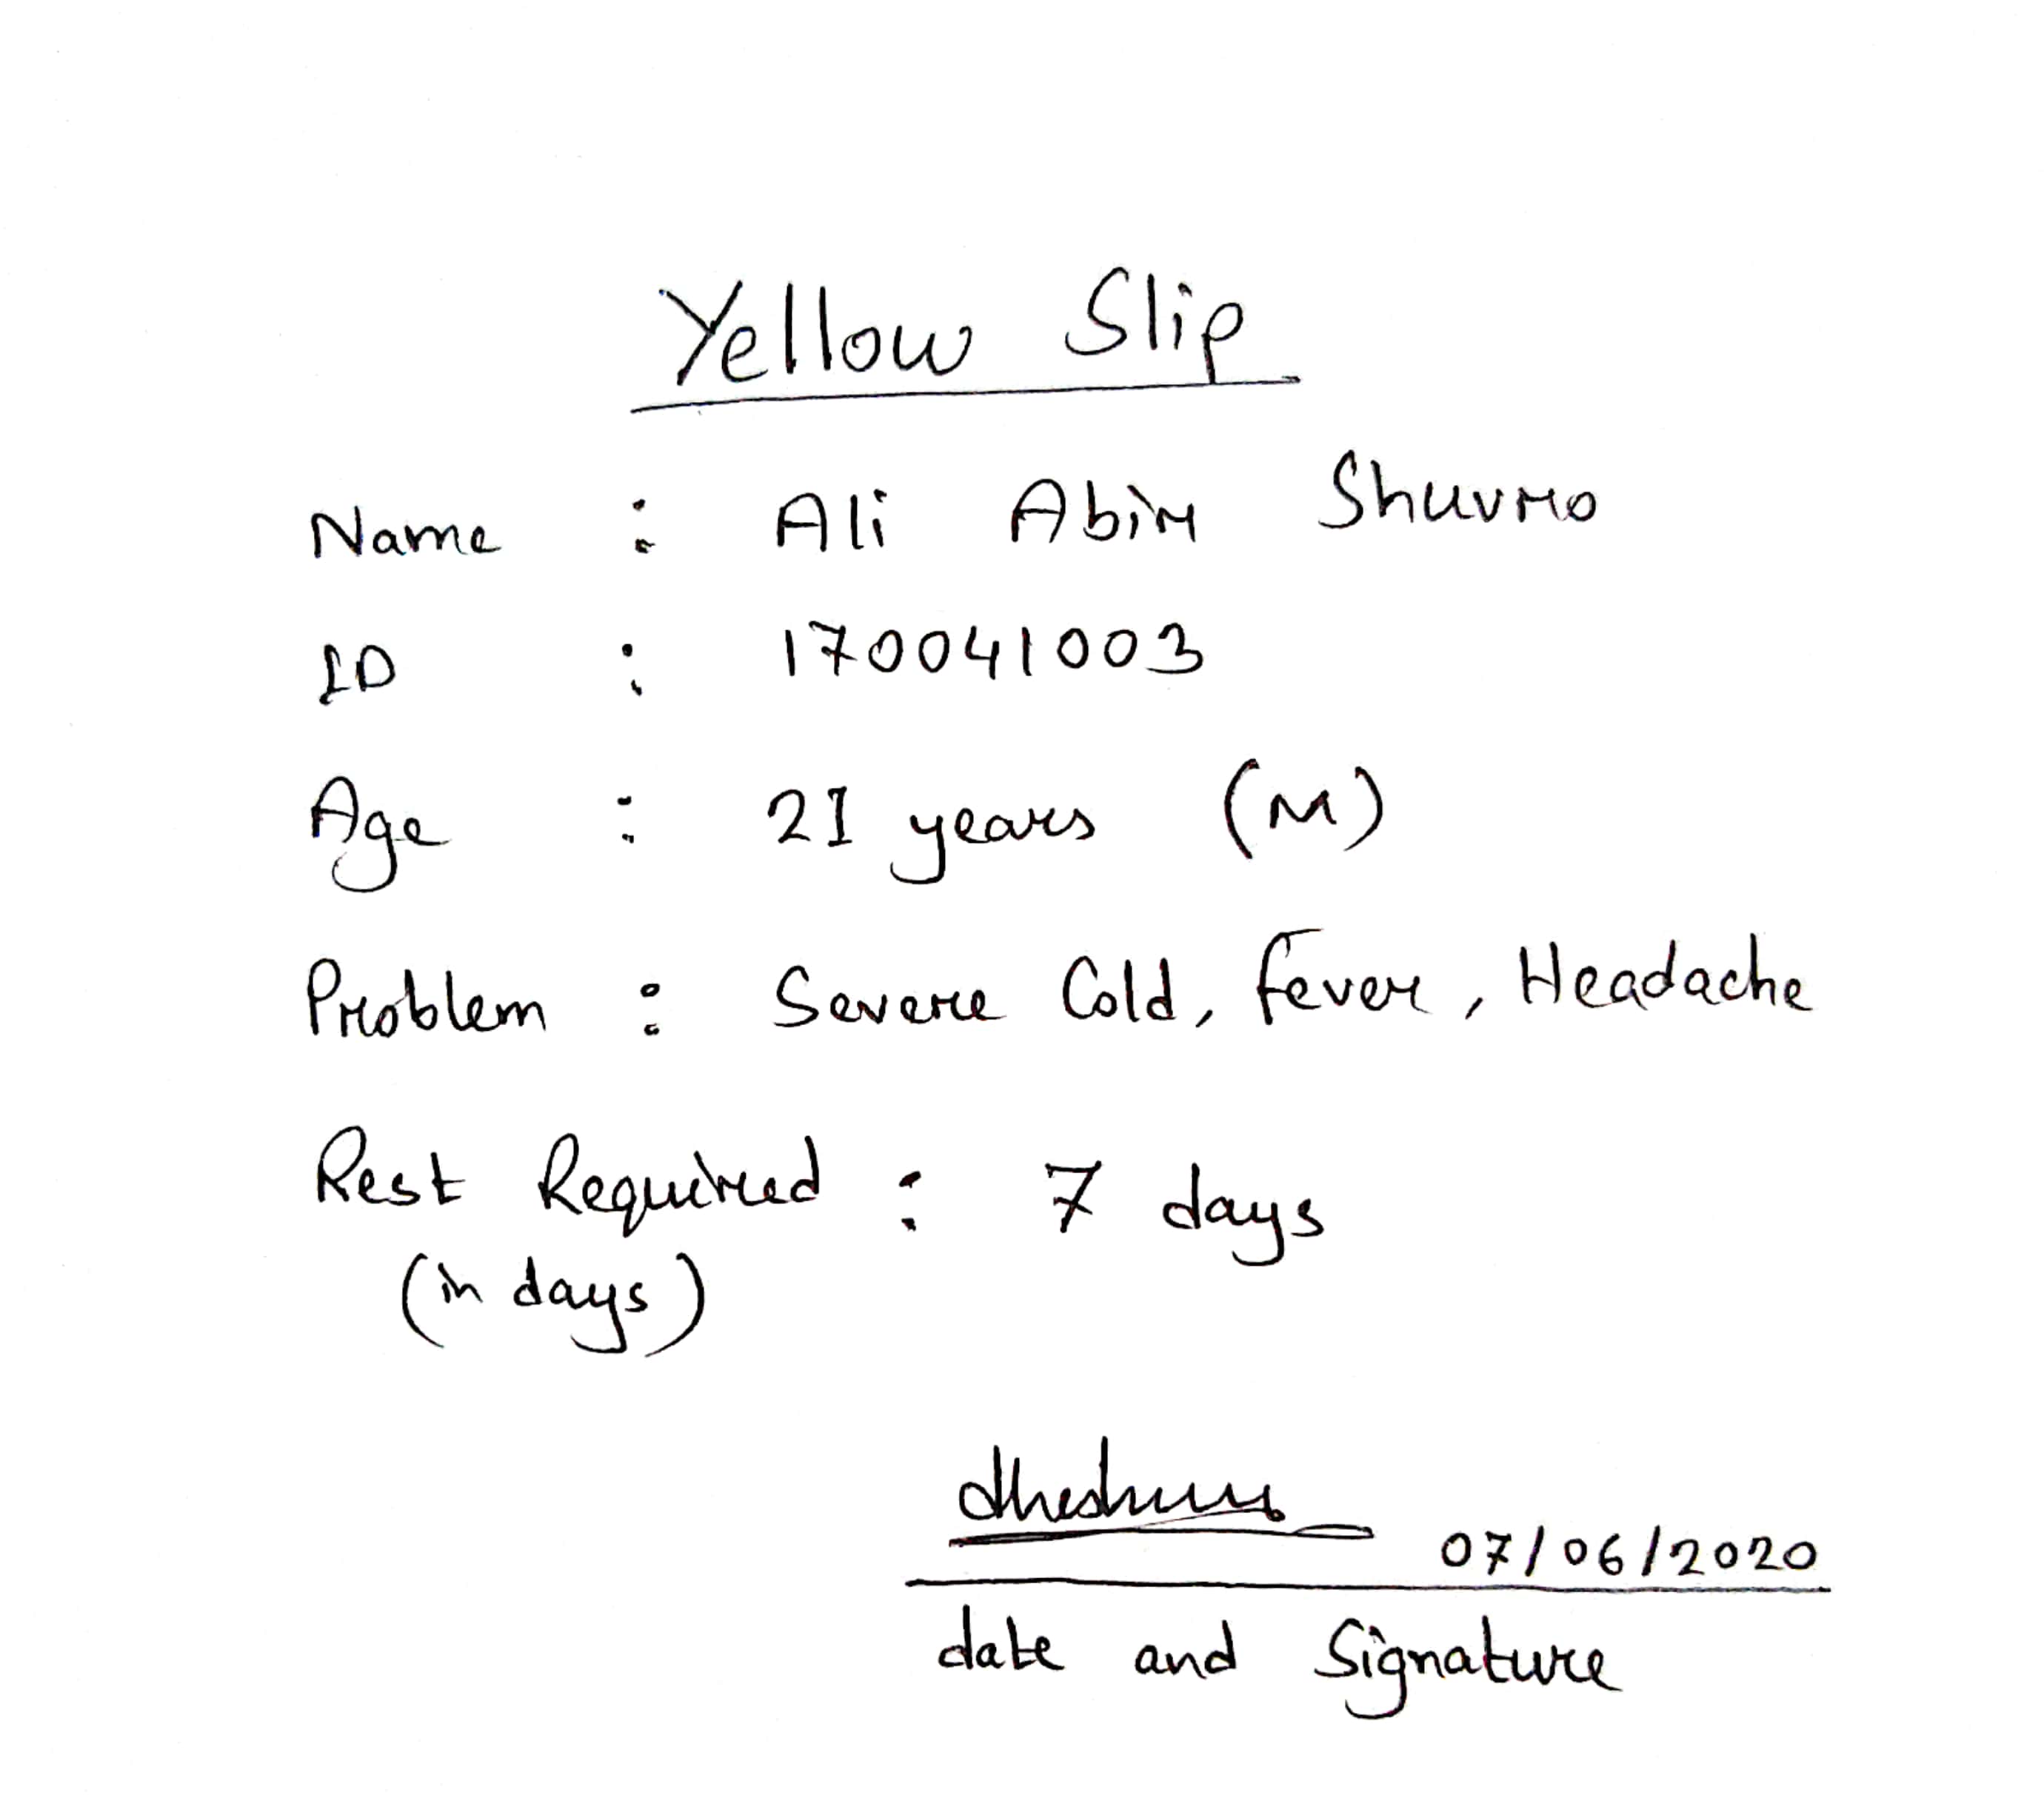 Yellow Slip
Name : Ali Abir Shuvro
ID : 170041003
Age : 21 years (M)
Problem : Severe Cold, Fever, Headache
Rest Required : 7 days
(in days)
07/06/2020
date and Signature